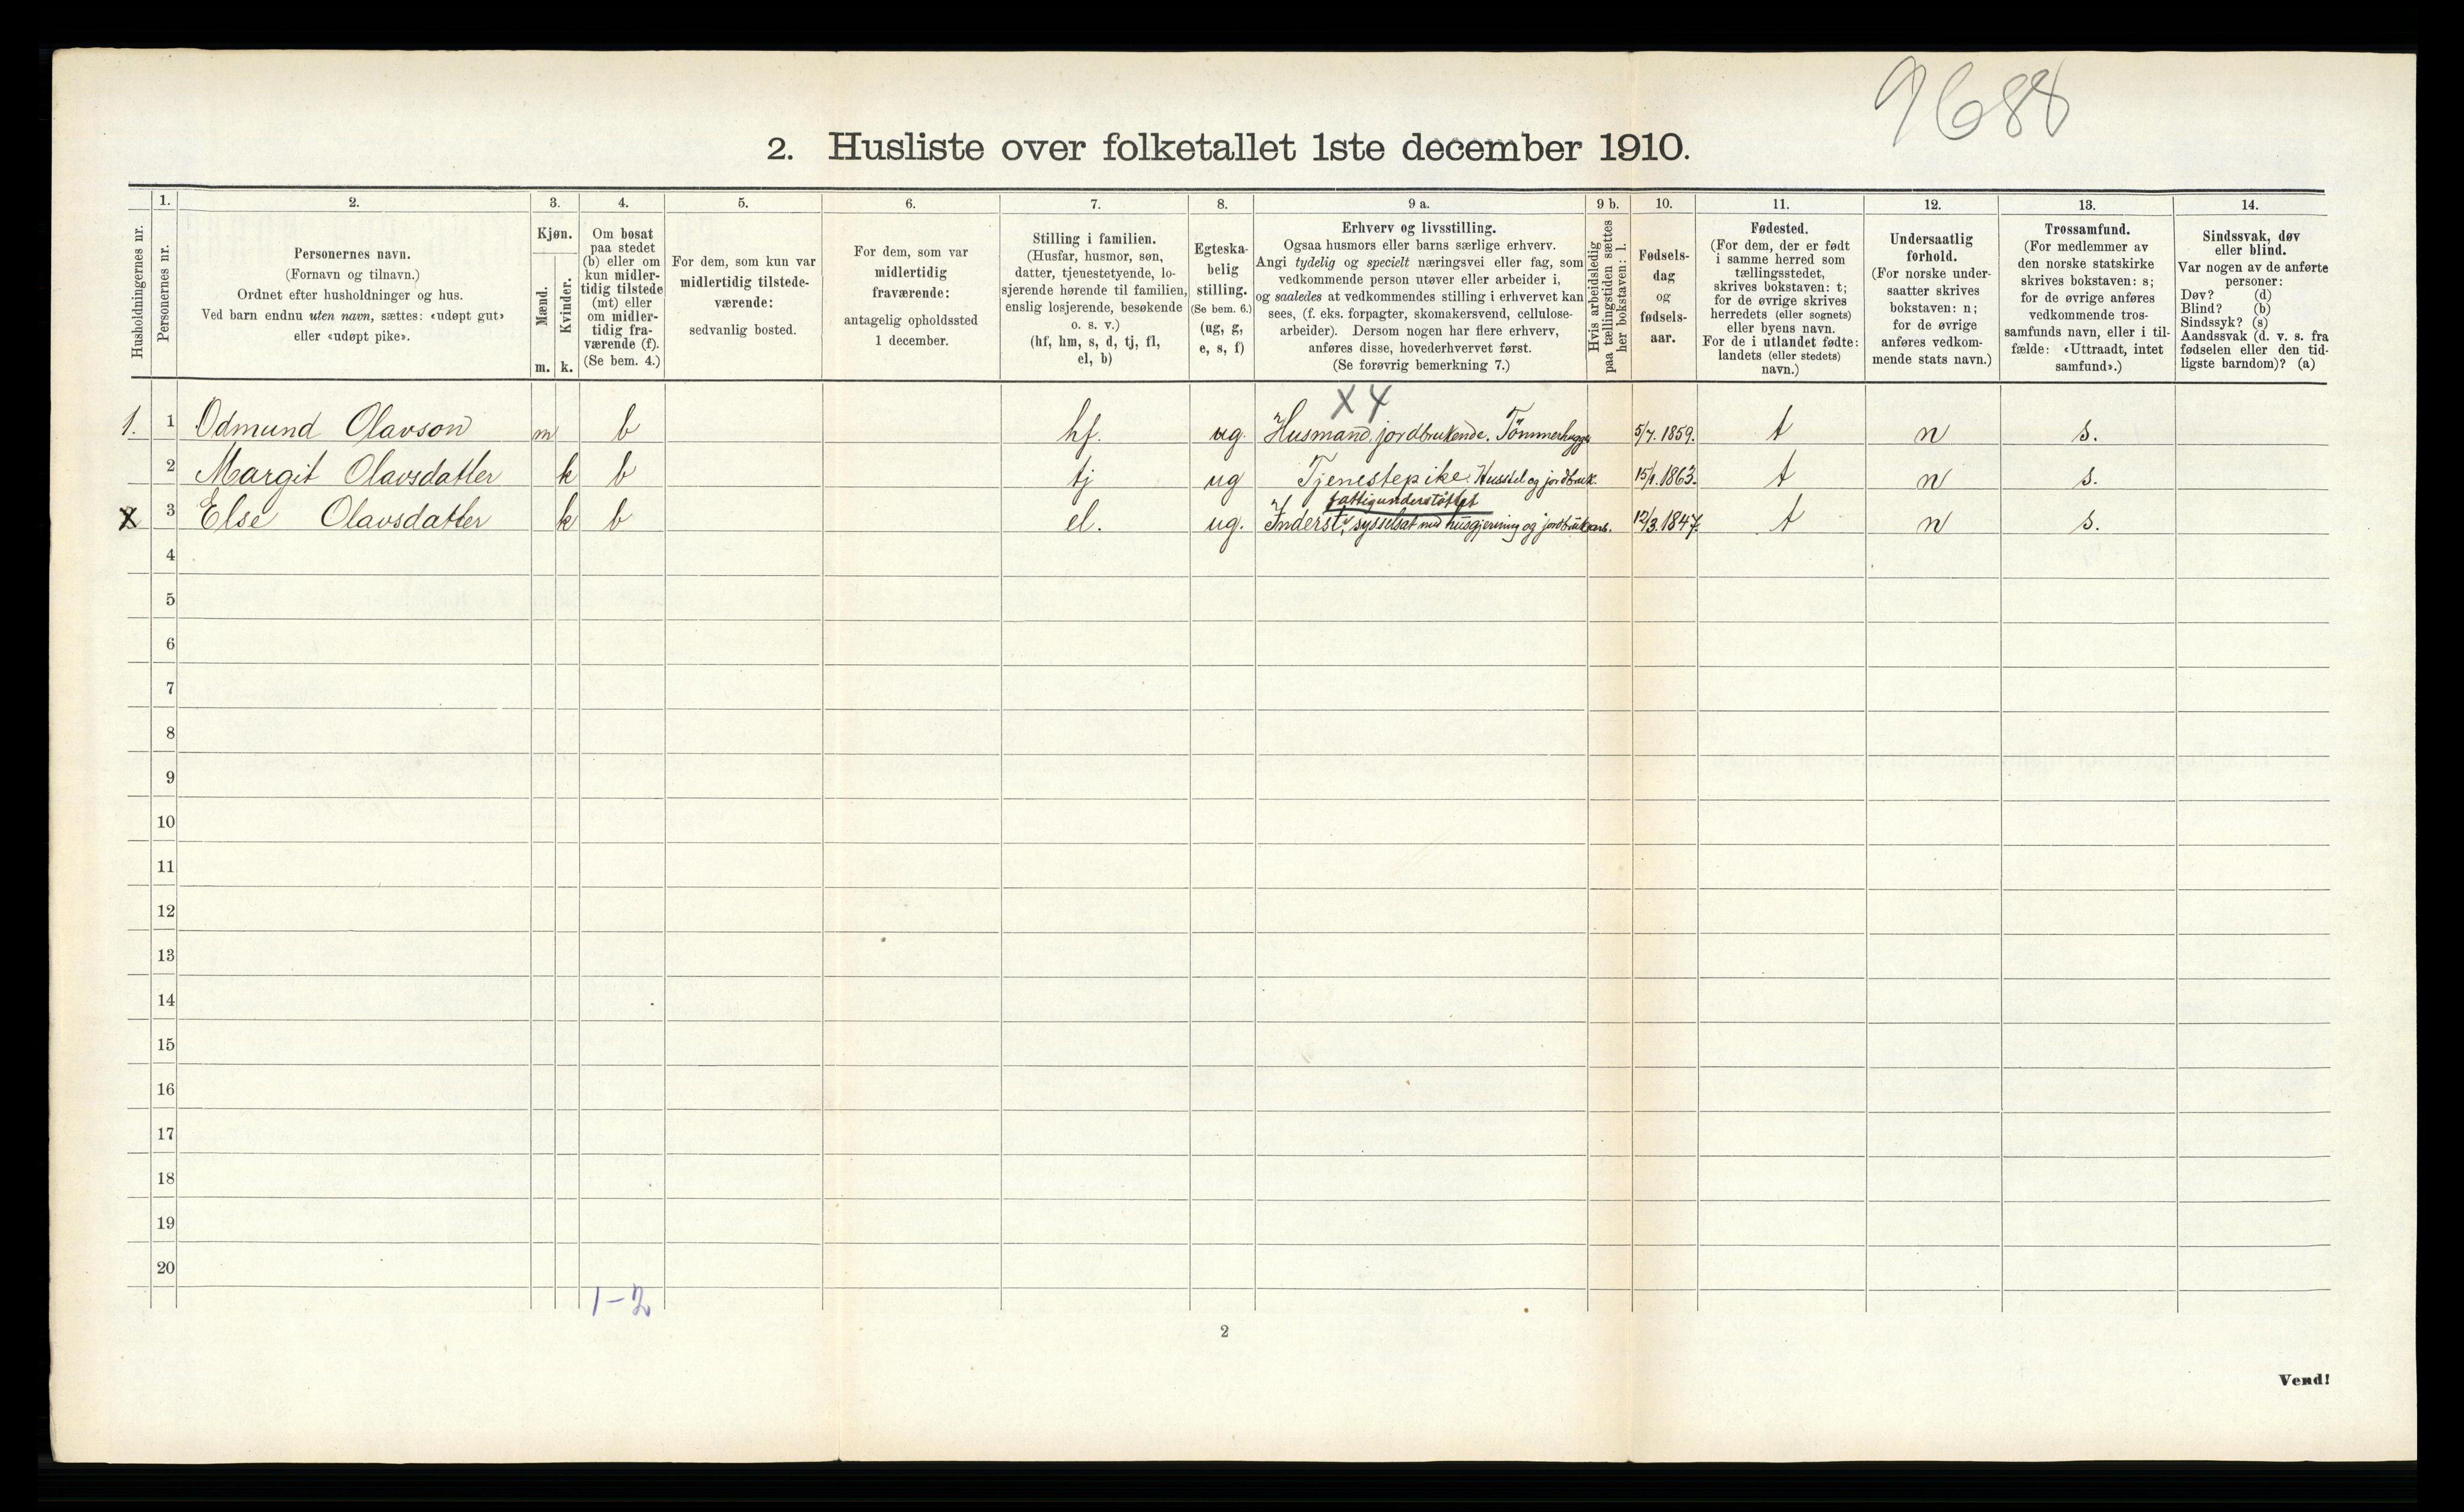 9688
2. Husliste over folketallet 1ste december 1910.
Husholdningernes nr.
1.
Personernes nr.
2.
Personernes navn.
(Fornavn og tilnavn.)
Ordnet efter husholdninger og hus.
Ved barn endnu uten navn, sættes: «udøpt gut»
eller «udøpt pike».
3.
Kjøn.
Mænd.
Kvinder.
m. k.
4.
Om bosat
paa stedet
(b) eller om
kun midler-
tidig tilstede
(mt) eller
om midler-
tidig fra-
værende (f).
(Se bem. 4.)
5.
For dem, som kun var
midlertidig tilstede-
værende:
sedvanlig bosted.
6.
For dem, som var
midlertidig
fraværende:
antagelig opholdssted
1 december.
7.
Stilling i familien.
(Husfar, husmor, søn,
datter, tjenestetyende, lo-
sjerende hørende til familien,
enslig losjerende, besøkende
o. s. v.)
(hf, hm, s, d, tj, fl,
el, b)
8.
Egteska-
belig
stilling.
(Se bem. 6.)
(ug, g,
e, s, f)
9 a.
Erhverv og livsstilling.
Ogsaa husmors eller barns særlige erhverv.
Angi tydelig og specielt næringsvei eller fag, som
vedkommende person utøver eller arbeider i,
og saaledes at vedkommendes stilling i erhvervet kan
sees, (f. eks. forpagter, skomakersvend, cellulose-
arbeider). Dersom nogen har flere erhverv,
anføres disse, hovederhvervet først.
(Se forøvrig bemerkning 7.)
9 b.
Hvis arbeidsledig
paa tællingstiden sættes
her bokstaven: l.
10.
Fødsels-
dag
og
fødsels-
aar.
11.
Fødested.
(For dem, der er født
i samme herred som
tællingsstedet,
skrives bokstaven: t;
for de øvrige skrives
herredets (eller sognets)
eller byens navn.
For de i utlandet fødte:
landets (eller stedets)
navn.)
12.
Undersaatlig
forhold.
(For norske under-
saatter skrives
bokstaven: n;
for de øvrige
anføres vedkom-
mende stats navn.)
13.
Trossamfund.
(For medlemmer av
den norske statskirke
skrives bokstaven: s;
for de øvrige anføres
vedkommende tros-
samfunds navn, eller i til-
fælde: «Uttraadt, intet
samfund».)
14.
Sindssvak, døv
eller blind.
Var nogen av de anførte
personer:
Døv? (d)
Blind? (b)
Sindssyk? (s)
Aandssvak (d. v. s. fra
fødselen eller den tid-
ligste barndom)? (a)
X 4
1. 1 Odmund Olavson m b hf. ug. Husmand, jordbrukende. Tömmerhugger 5/7. 1859. t n s.
2 Margit Olavsdatter k b tj ug Tjenestepike. Husstel og jordbruk. 15/1. 1863. t n s.
fattigunderstöttet
X 3 Else Olavsdatter k b el. ug. Inderst, sysselsat med husgjerning og jordbruksarb. 12/3. 1847. t n s.
4
5
6
7
8
9
10
11
12
13
14
15
16
17
18
19
20
1-2
2
Vend!